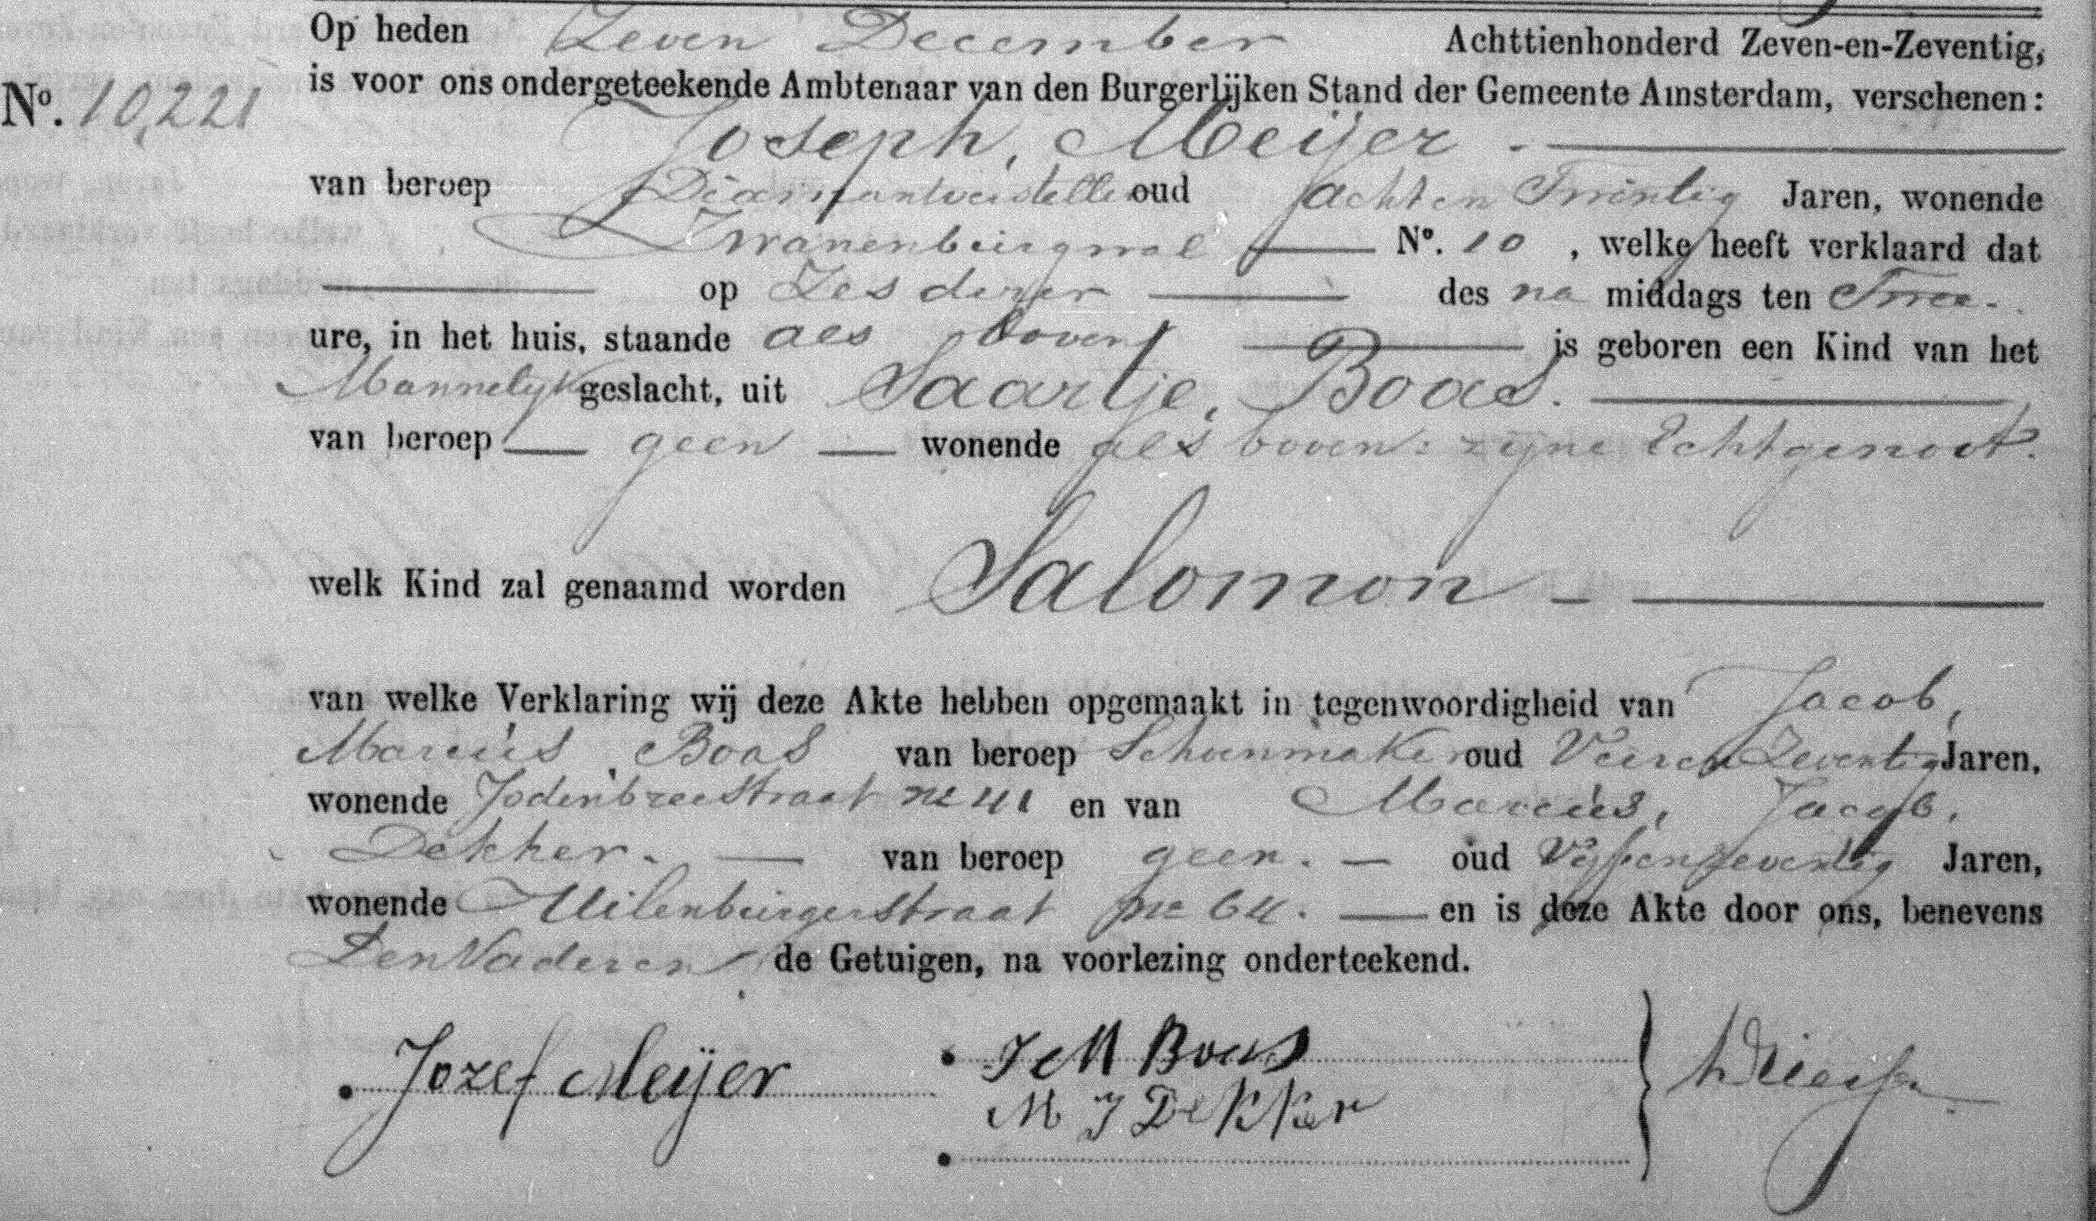 Op heden Zeven December Achttienhonderd Zeven-en-Zeventig,
No. 10,221 is voor ons ondergeteekende Ambtenaar van den Burgerlijken Stand der Gemeente Amsterdam, verschenen:
Joseph, Meijer
van beroep Diamantverstelle oud achten Twintig Jaren, wonende
Zwanenburgwal No. 10, welke heeft verklaard dat
op Zes dezer des na middags ten Twee
ure, in het huis, staande als boven is geboren een Kind van het
Mannelijk geslacht, uit Saartje, Boas.
van beroep geen wonende als boven: zijne Echtgenoot.
welk Kind zal genaamd worden Salomon
van welke Verklaring wij deze Akte hebben opgemaakt in tegenwoordigheid van Jacob,
Marcus Boas van beroep Schoenmaker oud Vieren Zeventig Jaren,
wonende Jodenbreestraat no 41 en van Marcus, Jacob.
Dekker. van beroep geen. oud Vijfenzeventig Jaren,
wonende Uilenburgerstraat no 64. en is deze Akte door ons, benevens
Den Vader en de Getuigen, na voorlezing onderteekend.
Jozef Meijer J M Boas
M J Dekker